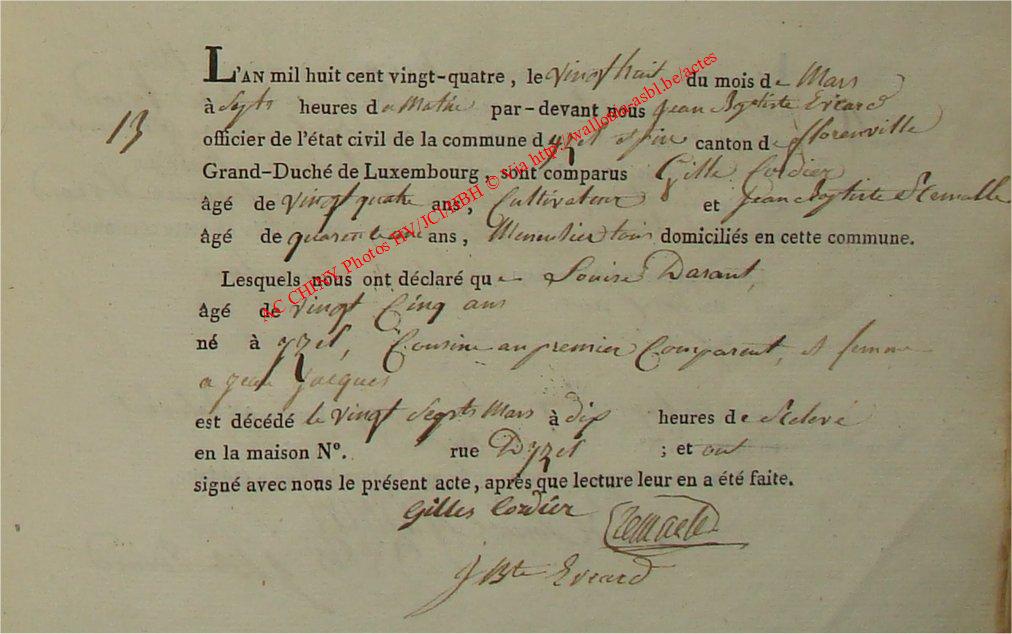 L'AN mil huit cent vingt-quatre, le vingt huit du mois de Mars
à Septs heures de Matin par-devant nous Jean Baptiste Evrard
13
officier de l'état civil de la commune d'yzel canton de florenville
Grand-Duché de Luxembourg, sont comparus Gille Cordier
âgé de vingt quatre ans, Cultivateur et Jean Baptiste
âgé de ans, Menuisier tous domiciliés en cette commune.
Lesquels nous ont déclaré que Louise Dasant,
âgé de vingt Cinq ans
né à yzel, Cousine au premier Comparent, et femme
a jean jacques
est décédé le vingt Septs Mars à dix heures de
en la maison N°. rue Dyzel ; et ont
signé avec nous le présent acte, après que lecture leur en a été faite.
Gilles Cordier
JBte Evrard
AC CHINY Photos HV/JCL/IBH © Via http://wallonia-asbl.be/actes